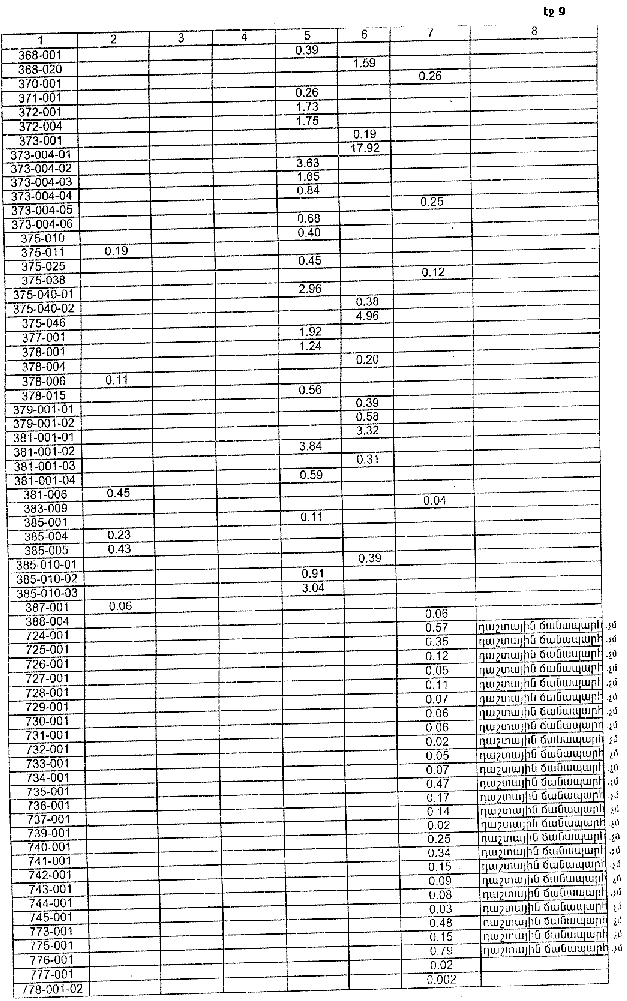 էջ 9
1 2 3 4 5 6 7 8
368-001 0.39
368-020 1.59
370-001 0.26
371-001 0.26
372-001 1.73
372-004 1.75
373-001 0.19
373-004-01 17.92
373-004-02 3.63
373-004-03 1.65
373-004-04 0.84
373-004-05 0.25
373-004-06 0.68
375-010 0.40
375-011 0.19
375-025 0.45
375-038 0.12
375-040-01 2.96
375-040-02 0.38
375-046 4.96
377-001 1.92
378-001 1.24
378-004 0.20
378-006 0.11
378-015 0.56
379-001-01 0.39
379-001-02 0.58
381-001-01 3.32
381-001-02 3.84
381-001-03 0.31
381-001-04 0.59
381-006 0.45
383-009 0.04
385-001 0.11
385-004 0.23
385-005 0.43
385-010-01 0.39
385-010-02 0.91
385-010-03 3.04
387-001 0.06
388-004 0.06
724-001 0.57 դաշտային ճանապարհ
725-001 0.35 դաշտային ճանապարհ
726-001 0.12 դաշտային ճանապարհ
727-001 0.05 դաշտային ճանապարհ
728-001 0.11 դաշտային ճանապարհ
729-001 0.07 դաշտային ճանապարհ
730-001 0.06 դաշտային ճանապարհ
731-001 0.06 դաշտային ճանապարհ
732-001 0.02 դաշտային ճանապարհ
733-001 0.05 դաշտային ճանապարհ
734-001 0.07 դաշտային ճանապարհ
735-001 0.47 դաշտային ճանապարհ
736-001 0.17 դաշտային ճանապարհ
737-001 0.14 դաշտային ճանապարհ
739-001 0.02 դաշտային ճանապարհ
740-001 0.25 դաշտային ճանապարհ
741-001 0.34 դաշտային ճանապարհ
742-001 0.15 դաշտային ճանապարհ
743-001 0.09 դաշտային ճանապարհ
744-001 0.08 դաշտային ճանապարհ
745-001 0.03 դաշտային ճանապարհ
773-001 0.48 դաշտային ճանապարհ
775-001 0.15 դաշտային ճանապարհ
776-001 0.79 դաշտային ճանապարհ
777-001 0.02
778-001-02 0.002